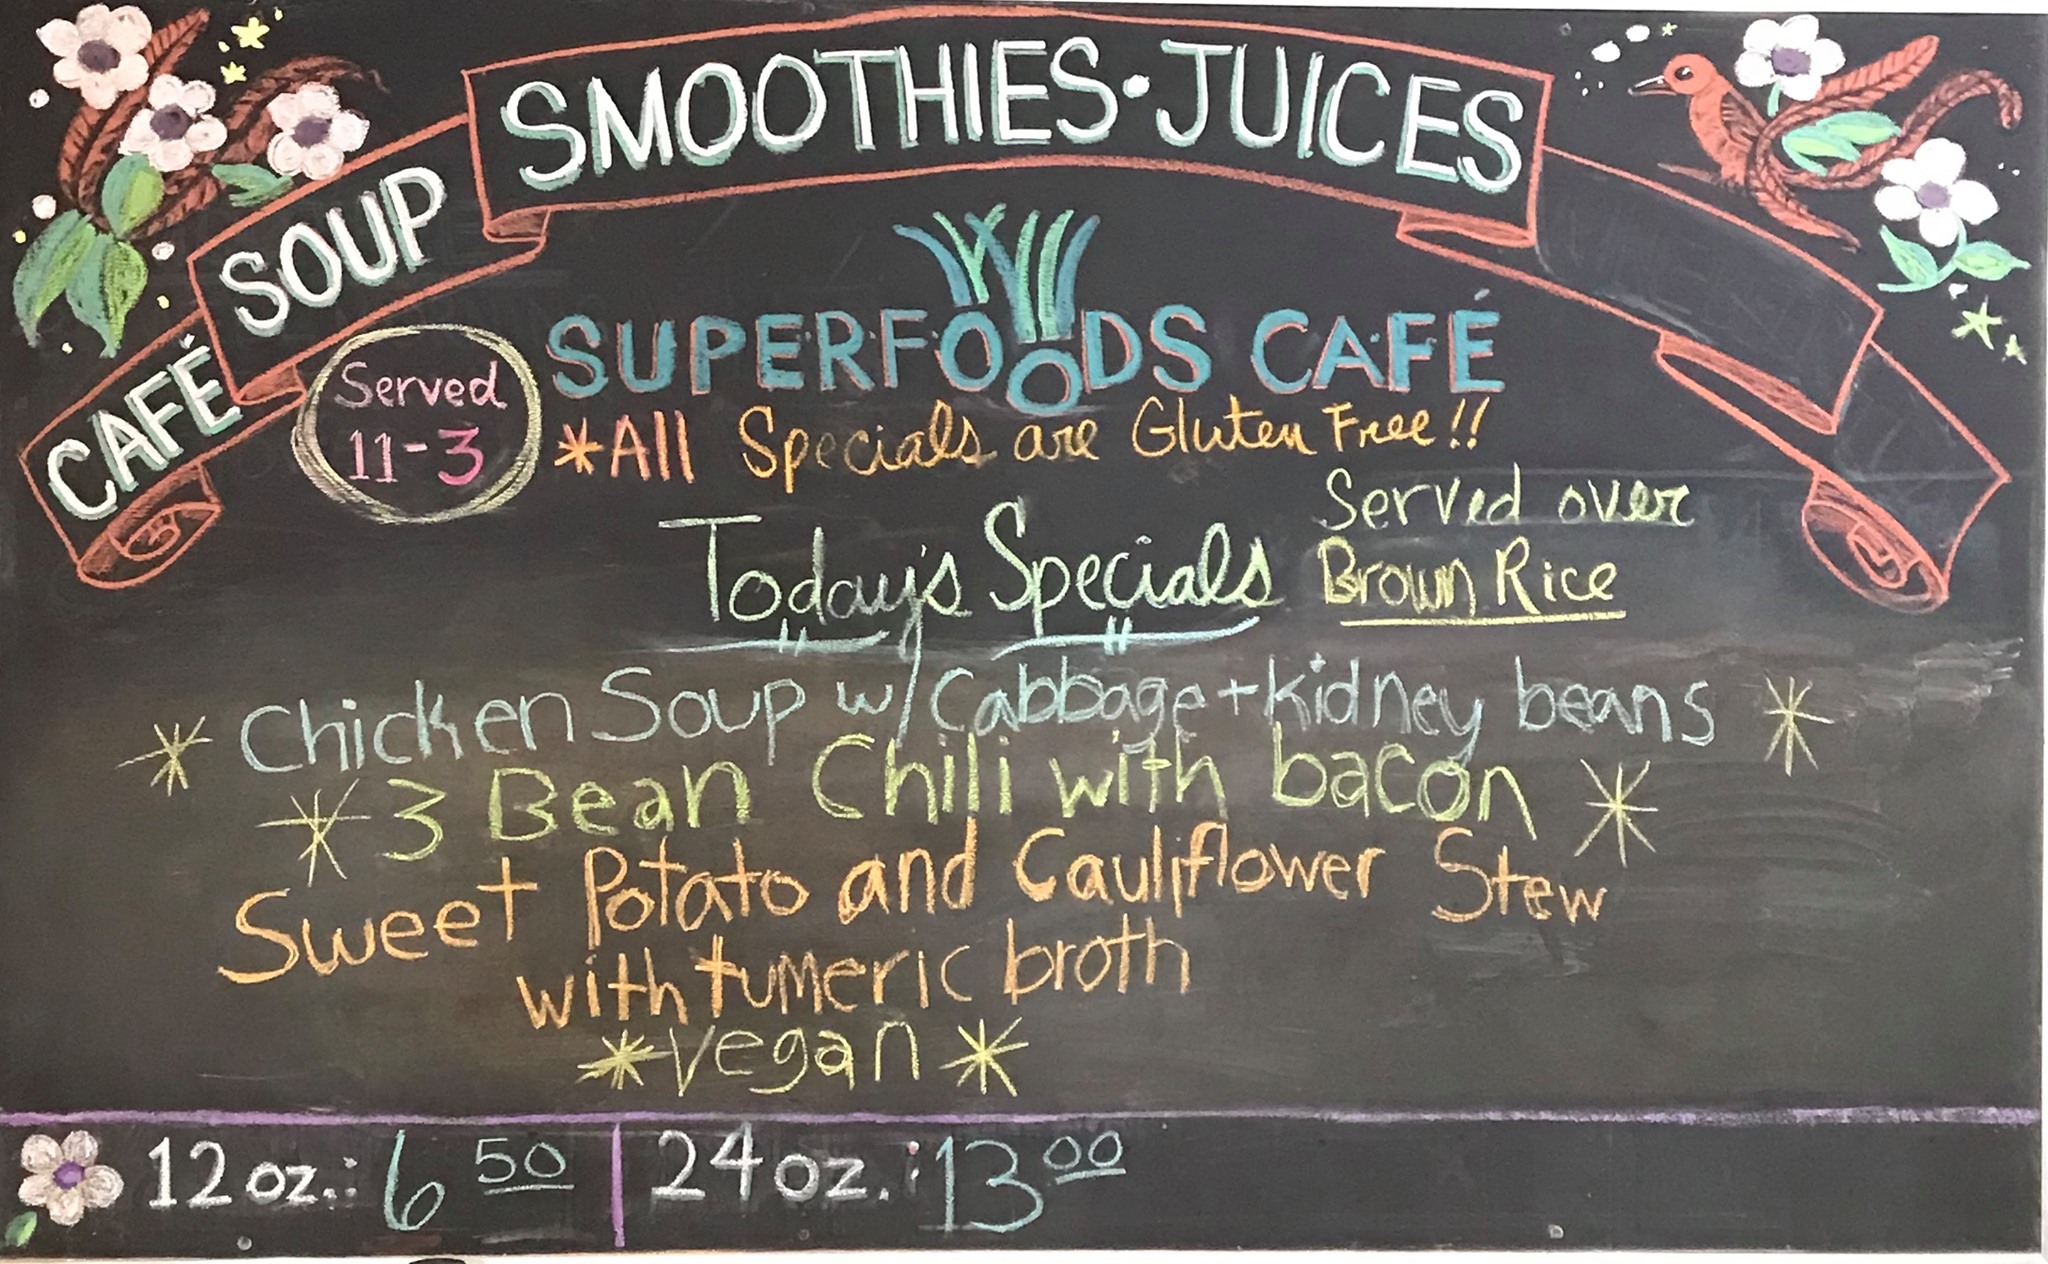 CAFÉ SOUP SMOOTHIES·JUICES
SUPERFOODS CAFÉ
Served
11-3
*All Specials are Gluten Free!!
Today's Specials
Served over
Brown Rice
*Chicken Soup w/Cabbage+kidney beans*
*3 Bean Chili with bacon*
Sweet Potato and Cauliflower Stew
with tumeric broth
*vegan*
12 oz.: 6 50 | 24 oz.: 13 00